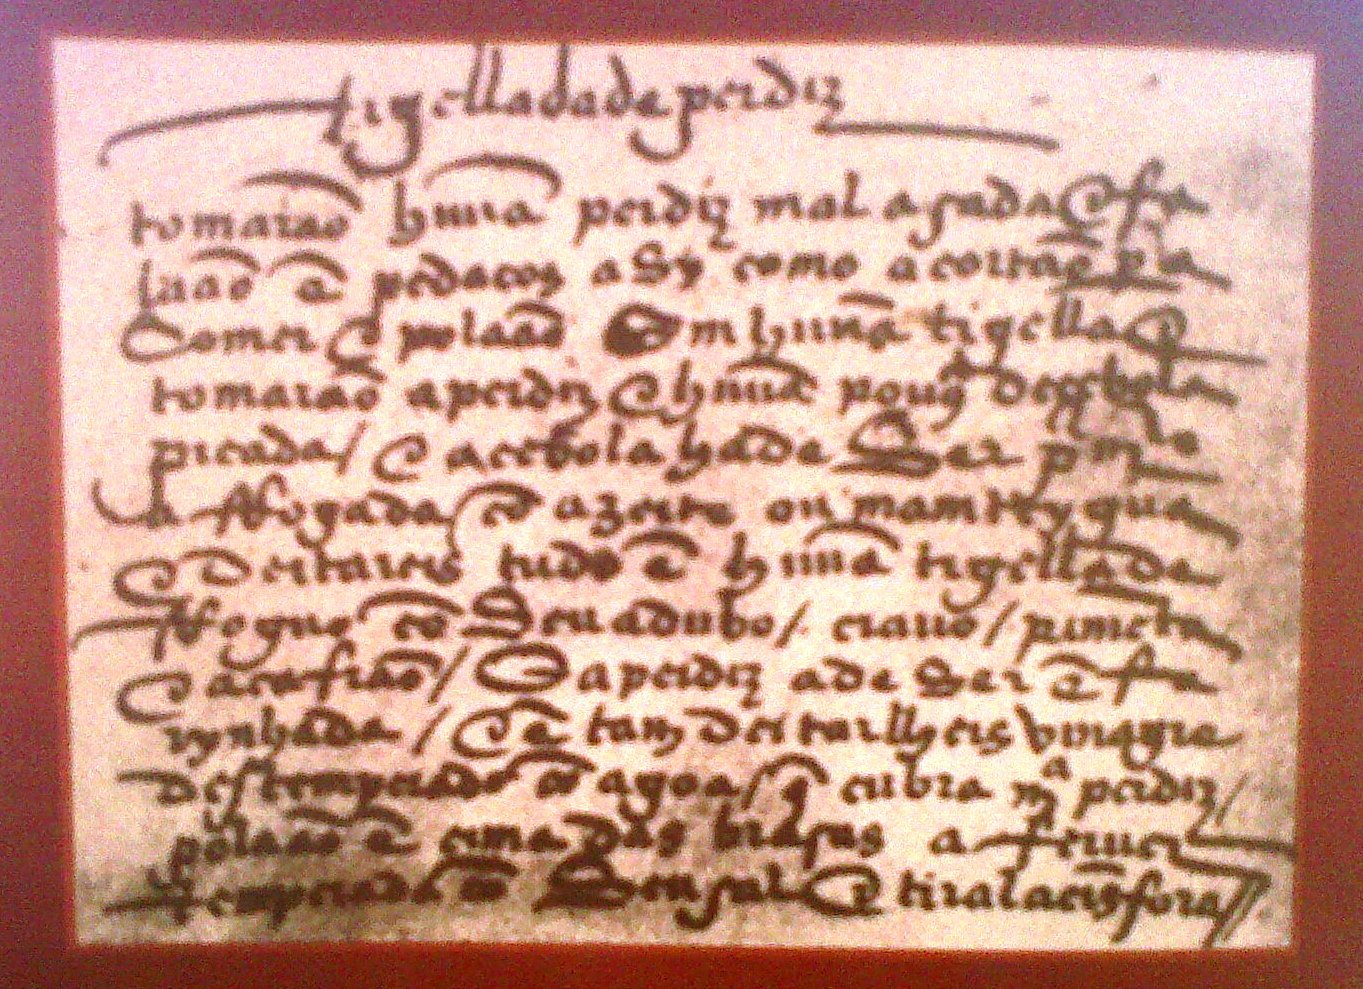 tigellada de perdiz
tomarão hũua perdiz mal asada e fa
laão ẽ pedacos asy como a cortão pa
comer e polaão em hũua tigella e
tomarão a perdiz e hũua pouqª de cebola
picada / e a cebola hade ser pmro
afogada cõ azeite ou mamteygua
e deitareis tudo ẽ hũua tigellada
afogue cõ seu adubo / crauo / pimeta
e acafrão / e a perdiz ade ser ẽ fa
rynhada / e ẽ tam deitarlheis vinagre
destemperado cõ agoa / q cubra mª perdiz /
polaão ẽ cima das brasas a feruer
temperado cõ seu sal e tiralaeis fora //